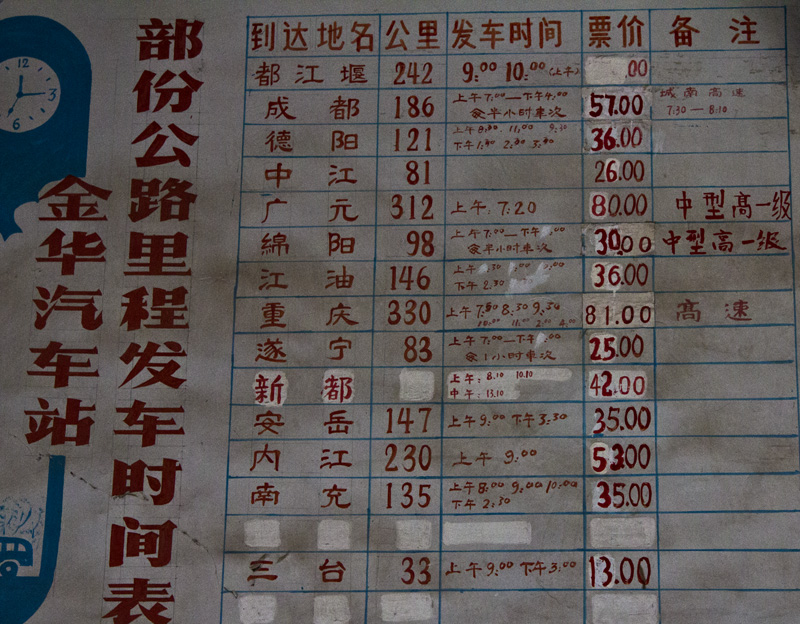 金华汽车站
部份公路里程发车时间表
12
3
6
到达地名 公里 发车时间 票价 备注
都江堰 242 9:00 10:00 (上午) .00
成都 186 上午7:00—下午4:00 57.00 城南高速
半小时车次 7:30—8:10
德阳 121 上午8:30 11:00 36.00
下午1:30 2:30 3:40
中江 81 26.00
广元 312 上午:7:20 80.00 中型高一级
綿阳 98 上午7:00—下午 30.00 中型高一级
半小时车次
江油 146 上午 36.00
下午2:30
重庆 330 上午7:30 8:30 9:30 81.00 高速
遂宁 83 上午7:00—下午 25.00
1小时车次
新都 上午:8.10 10.10 42.00
中午:13.10
安岳 147 上午9:00 下午3:30 35.00
内江 230 上午 9:00 53.00
南充 135 上午8:00 9:00 10:00 35.00
下午2:30
三台 33 上午9:00 下午3:00 13.00